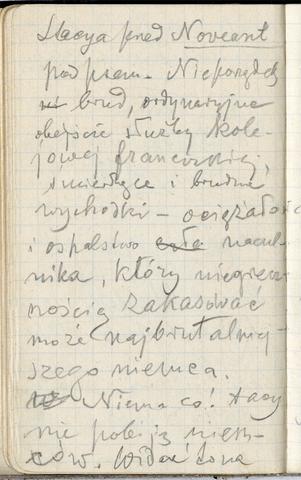 Stacya przed Novéant
pod psem. Nieporządek
brud, ordynaryjne
obejście służby kole-
jowej francuskiej,
śmierdzące i brudne
wychodki – ociężałość
i ospalstwo całe naczel-
nika, który niegrzecz-
nością zakasować
może najbrutalniej-
szego niemca.
Niema co! tacy
nie pobiją niem-
ców. Widać